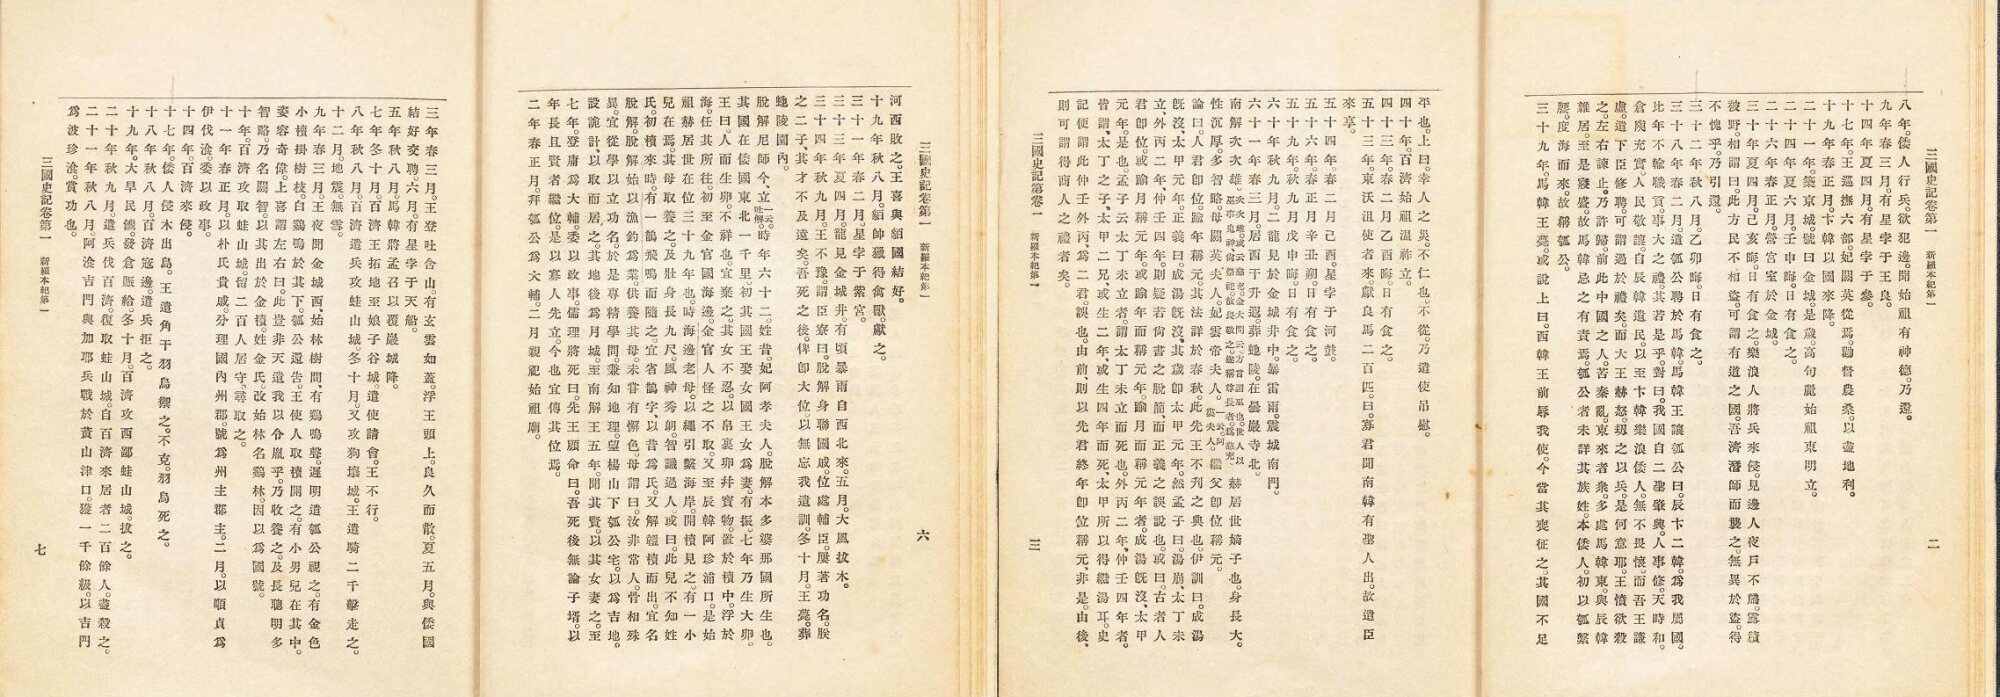 三國史記卷第一 新羅本紀第一 二
八年。倭人行兵。欲犯邊。聞始祖有神德。乃還。
九年春三月。有星孛于王良。
十四年夏四月。有星孛于參。
十七年。王巡撫六部。妃閼英從焉。勸督農桑。以盡地利。
十九年春正月。卞韓以國來降。
二十一年。築京城。號曰金城。是歲。高句麗始祖東明立。
二十四年夏六月壬申晦。日有食之。
二十六年春正月。營宮室於金城。
三十年夏四月己亥晦。日有食之。樂浪人將兵來侵。見邊人夜戶不扃。露積
被野。相謂曰。此方民不相盜。可謂有道之國。吾儕潛師而襲之。無異於盜。得
不愧乎。乃引還。
三十二年秋八月。乙卯晦。日有食之。
三十八年春二月。遣瓠公聘於馬韓。馬韓王讓瓠公曰。辰卞二韓。爲我屬國。
比年不輸職貢。事大之禮。其若是乎。對曰。我國自二聖肇興。人事修。天時和。
倉庾充實。人民敬讓。自辰韓遺民。以至卞韓樂浪倭人。無不畏懷。而吾王謙
虛。遣下臣修聘。可謂過於禮矣。而大王赫怒。劫之以兵。是何意耶。王憤欲殺
之。左右諫止。乃許歸。前此中國之人。苦秦亂。東來者衆。多處馬韓東。與辰韓
雜居。至是寖盛。故馬韓忌之有責焉。瓠公者未詳其族姓。本倭人。初以瓠繫
腰。度海而來。故稱瓠公。
三十九年。馬韓王薨。或說上曰。西韓王前辱我使。今當其喪征之。其國不足
平也。上曰。幸人之災。不仁也。不從。乃遣使吊慰。
四十年。百濟始祖溫祚立。
四十三年。春二月乙酉晦。日有食之。
五十三年。東沃沮使者來。獻良馬二百匹。曰。寡君聞南韓有聖人出。故遣臣
來享。
五十四年。春二月己酉。星孛于河鼓。
五十六年。春正月辛丑朔。日有食之。
五十九年。秋九月戊申晦。日有食之。
六十年。秋九月。二龍見於金城井中。暴雷雨。震城南門。
六十一年。春三月。居西干升遐。葬虵陵。在曇巖寺北。
南解次次雄立。次次雄。或云慈充。金大問云。方言謂巫也。世人以巫事鬼神。尙祭祀。故畏敬之。遂稱尊長者。爲慈充。赫居世嫡子也。身長大。
性沉厚。多智略。母閼英夫人。妃雲帝夫人。一云。阿婁夫人。繼父卽位稱元。
論曰。人君卽位。踰年稱元。其法詳於春秋。此先王不刊之典也。伊訓曰。成湯
旣沒。太甲元年。正義曰。成湯旣沒。其歲卽太甲元年。然孟子曰。湯崩。太丁未
立、外丙二年、仲壬四年。則疑若尙書之脫簡。而正義之誤說也。或曰。古者人
君卽位。或踰月稱元年。或踰年而稱元年。踰月而稱元年者。成湯旣沒、太甲
元年。是也。孟子云太丁未立者。謂太丁未立而死也。外丙二年、仲壬四年者。
皆謂、太丁之子、太甲二兄、或生二年、或生四年而死、太甲所以得繼湯耳。史
記便謂此仲壬外丙、爲二君。誤也。由前則以先君終年卽位稱元、非是。由後、
則可謂得商人之禮者矣。
三國史記第卷一 新羅本紀第一 三
三國史記卷第一 新羅本紀第一 六
河西敗之。王喜與貊國結好。
十九年秋八月。貊帥獵得禽獸。獻之。
三十一年。春二月。星孛于紫宮。
三十三年。夏四月。龍見金城井。有頃暴雨自西北來。五月。大風拔木。
三十四年秋九月。王不豫。謂臣寮曰。脫解身聯國戚。位處輔臣。屢著功名。朕
之二子。其才不及遠矣。吾死之後。俾卽大位。以無忘我遺訓。冬十月。王薨。葬
虵陵園內。
脫解尼師今、立。一云。吐解。時年六十二。姓昔。妃阿孝夫人。脫解本多婆那國所生也。
其國在倭國東北一千里。初其國王娶女國王女爲妻。有振。七年乃生大卵。
王曰。人而生卵。不祥也。宜棄之。其女不忍。以帛裹卵幷寶物。置於櫝中。浮於
海。任其所往。初至金官國海邊。金官人怪之不取。又至辰韓阿珍浦口。是始
祖赫居世在位三十九年也。時海邊老母。以繩引繫海岸。開櫝見之。有一小
兒在焉。其母取養之。及壯身長九尺。風神秀朗。智識過人。或曰。此兒不知姓
氏。初櫝來時。有一鵲飛鳴而隨之。宜省鵲字、以昔爲氏。又解韞櫝而出。宜名
脫解。脫解始以漁釣爲業。供養其母。未嘗有懈色。母謂曰。汝非常人。骨相殊
異。宜從學以立功名。於是專精學問。兼知地理。望楊山下瓠公宅。以爲吉地。
設詭計、以取而居之。其地後爲月城。至南解王五年。聞其賢。以其女妻之。至
七年。登庸爲大輔。委以政事。儒理將死曰。先王顧命曰。吾死後無論子壻。以
年長且賢者繼位。是以寡人先立。今也宜傳其位焉。
二年春正月。拜瓠公爲大輔。二月。親祀始祖廟。
三年春三月。王登吐含山。有玄雲如蓋。浮王頭上。良久而散。夏五月。與倭國
結好交聘。六月。有星孛于天船。
五年秋八月。馬韓將孟召以覆巖城降。
七年冬十月。百濟王拓地至娘子谷城。遣使請會。王不行。
八年秋八月。百濟遣兵攻蛙山城。冬十月。又攻狗壤城。王遣騎二千擊走之。
十二月。地震。無雪。
九年春三月。王夜聞金城西、始林樹間、有鷄鳴聲。遲明遣瓠公視之。有金色
小櫝掛樹枝。白鷄鳴於其下。瓠公還告。王使人取櫝開之。有小男兒在其中。
姿容奇偉。上喜謂左右曰。此豈非天遺我以令胤乎。乃收養之。及長聰明多
智略。乃名閼智。以其出於金櫝。姓金氏。改始林名鷄林。因以爲國號。
十年。百濟攻取蛙山城。留二百人居守。尋取之。
十一年春正月。以朴氏貴戚。分理國內州郡。號爲州主郡主。二月。以順貞爲
伊伐湌。委以政事。
十四年。百濟來侵。
十七年。倭人侵木出島。王遣角干羽烏禦之。不克。羽烏死之。
十八年秋八月。百濟寇邊。遣兵拒之。
十九年。大旱民饑。發倉賑給。冬十月。百濟攻西鄙蛙山城。拔之。
二十年秋九月。遣兵伐百濟。復取蛙山城。自百濟來居者二百餘人。盡殺之。
二十一年秋八月。阿湌吉門與加耶兵戰於黃山津口。獲一千餘級。以吉門
爲波珍湌。賞功也。
三國史記卷第一 新羅本紀第一 七